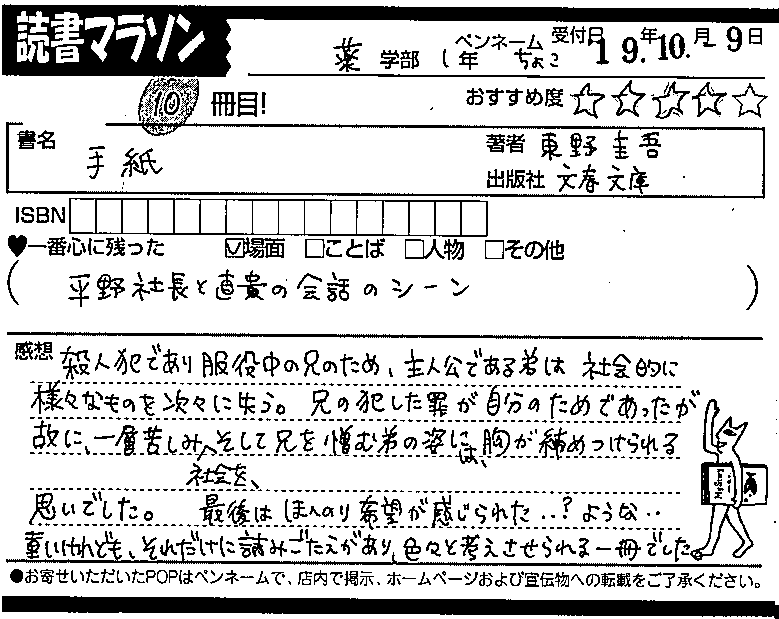 読書マラソン
薬 学部 1年 ペンネーム ちょこ 受付日 19.年10.月 9日
10 冊目! おすすめ度 ☆☆☆☆☆
書名 手紙 著者 東野圭吾
出版社 文春文庫
ISBN
♥一番心に残った ☑場面 □ことば □人物 □その他
(平野社長と直貴の会話のシーン)
感想 殺人犯であり服役中の兄のため、主人公である弟は 社会的に
様々なものを次々に失う。兄の犯した罪が自分のためであったが
故に、一層苦しみ、社会を、そして兄を憎む弟の姿には、胸が締めつけられる
思いでした。 最後はほんのり希望が感じられた‥?ような‥
重いけれども、それだけに読みごたえがあり、色々と考えさせられる一冊でした。
●お寄せいただいたPOPはペンネームで、店内で掲示、ホームページおよび宣伝物への転載をご了承ください。